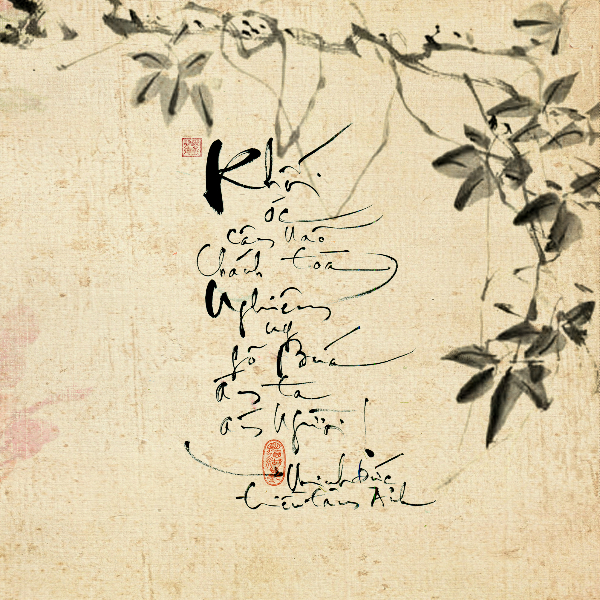 Khối
óc
Chánh tòa
Nghiêm
uy
gõ Búa
án ta
án Người!
Minh Đức
Triều Tâm Ảnh